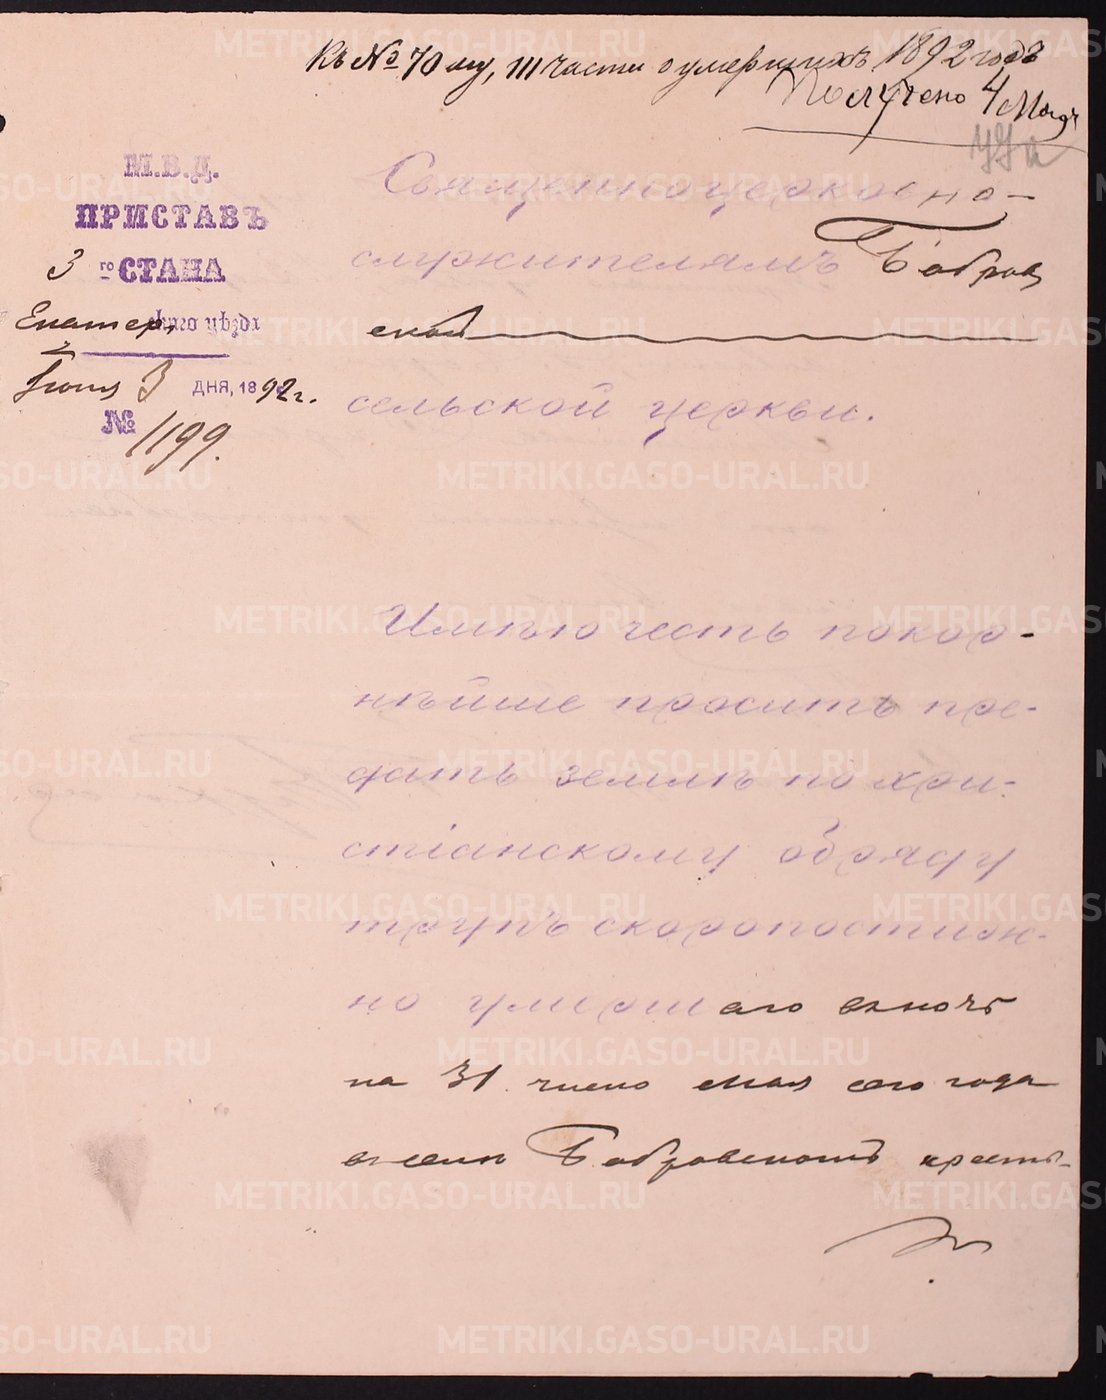 Къ № 70 му, III части о умершихъ 1892 годъ
Получено 4
77а
М.В.Д.
ПРИСТАВЪ
3 го СТАНА
Екатер. скаго уѣзда
Іюня 3 дня, 1892 г.
№ 1199.
Священноцерковно-
служителямъ Бобров
ской
сельской церкви.
Имѣю честь покор-
нѣйше просить пре-
дать землѣ по хри-
стіанскому обряду
трупъ скоропостиж-
но умершаго въ ночь
на 31 число мая сего года
въ селѣ Бобровскомъ кресть-
METRIKI.GASO-URAL.RU